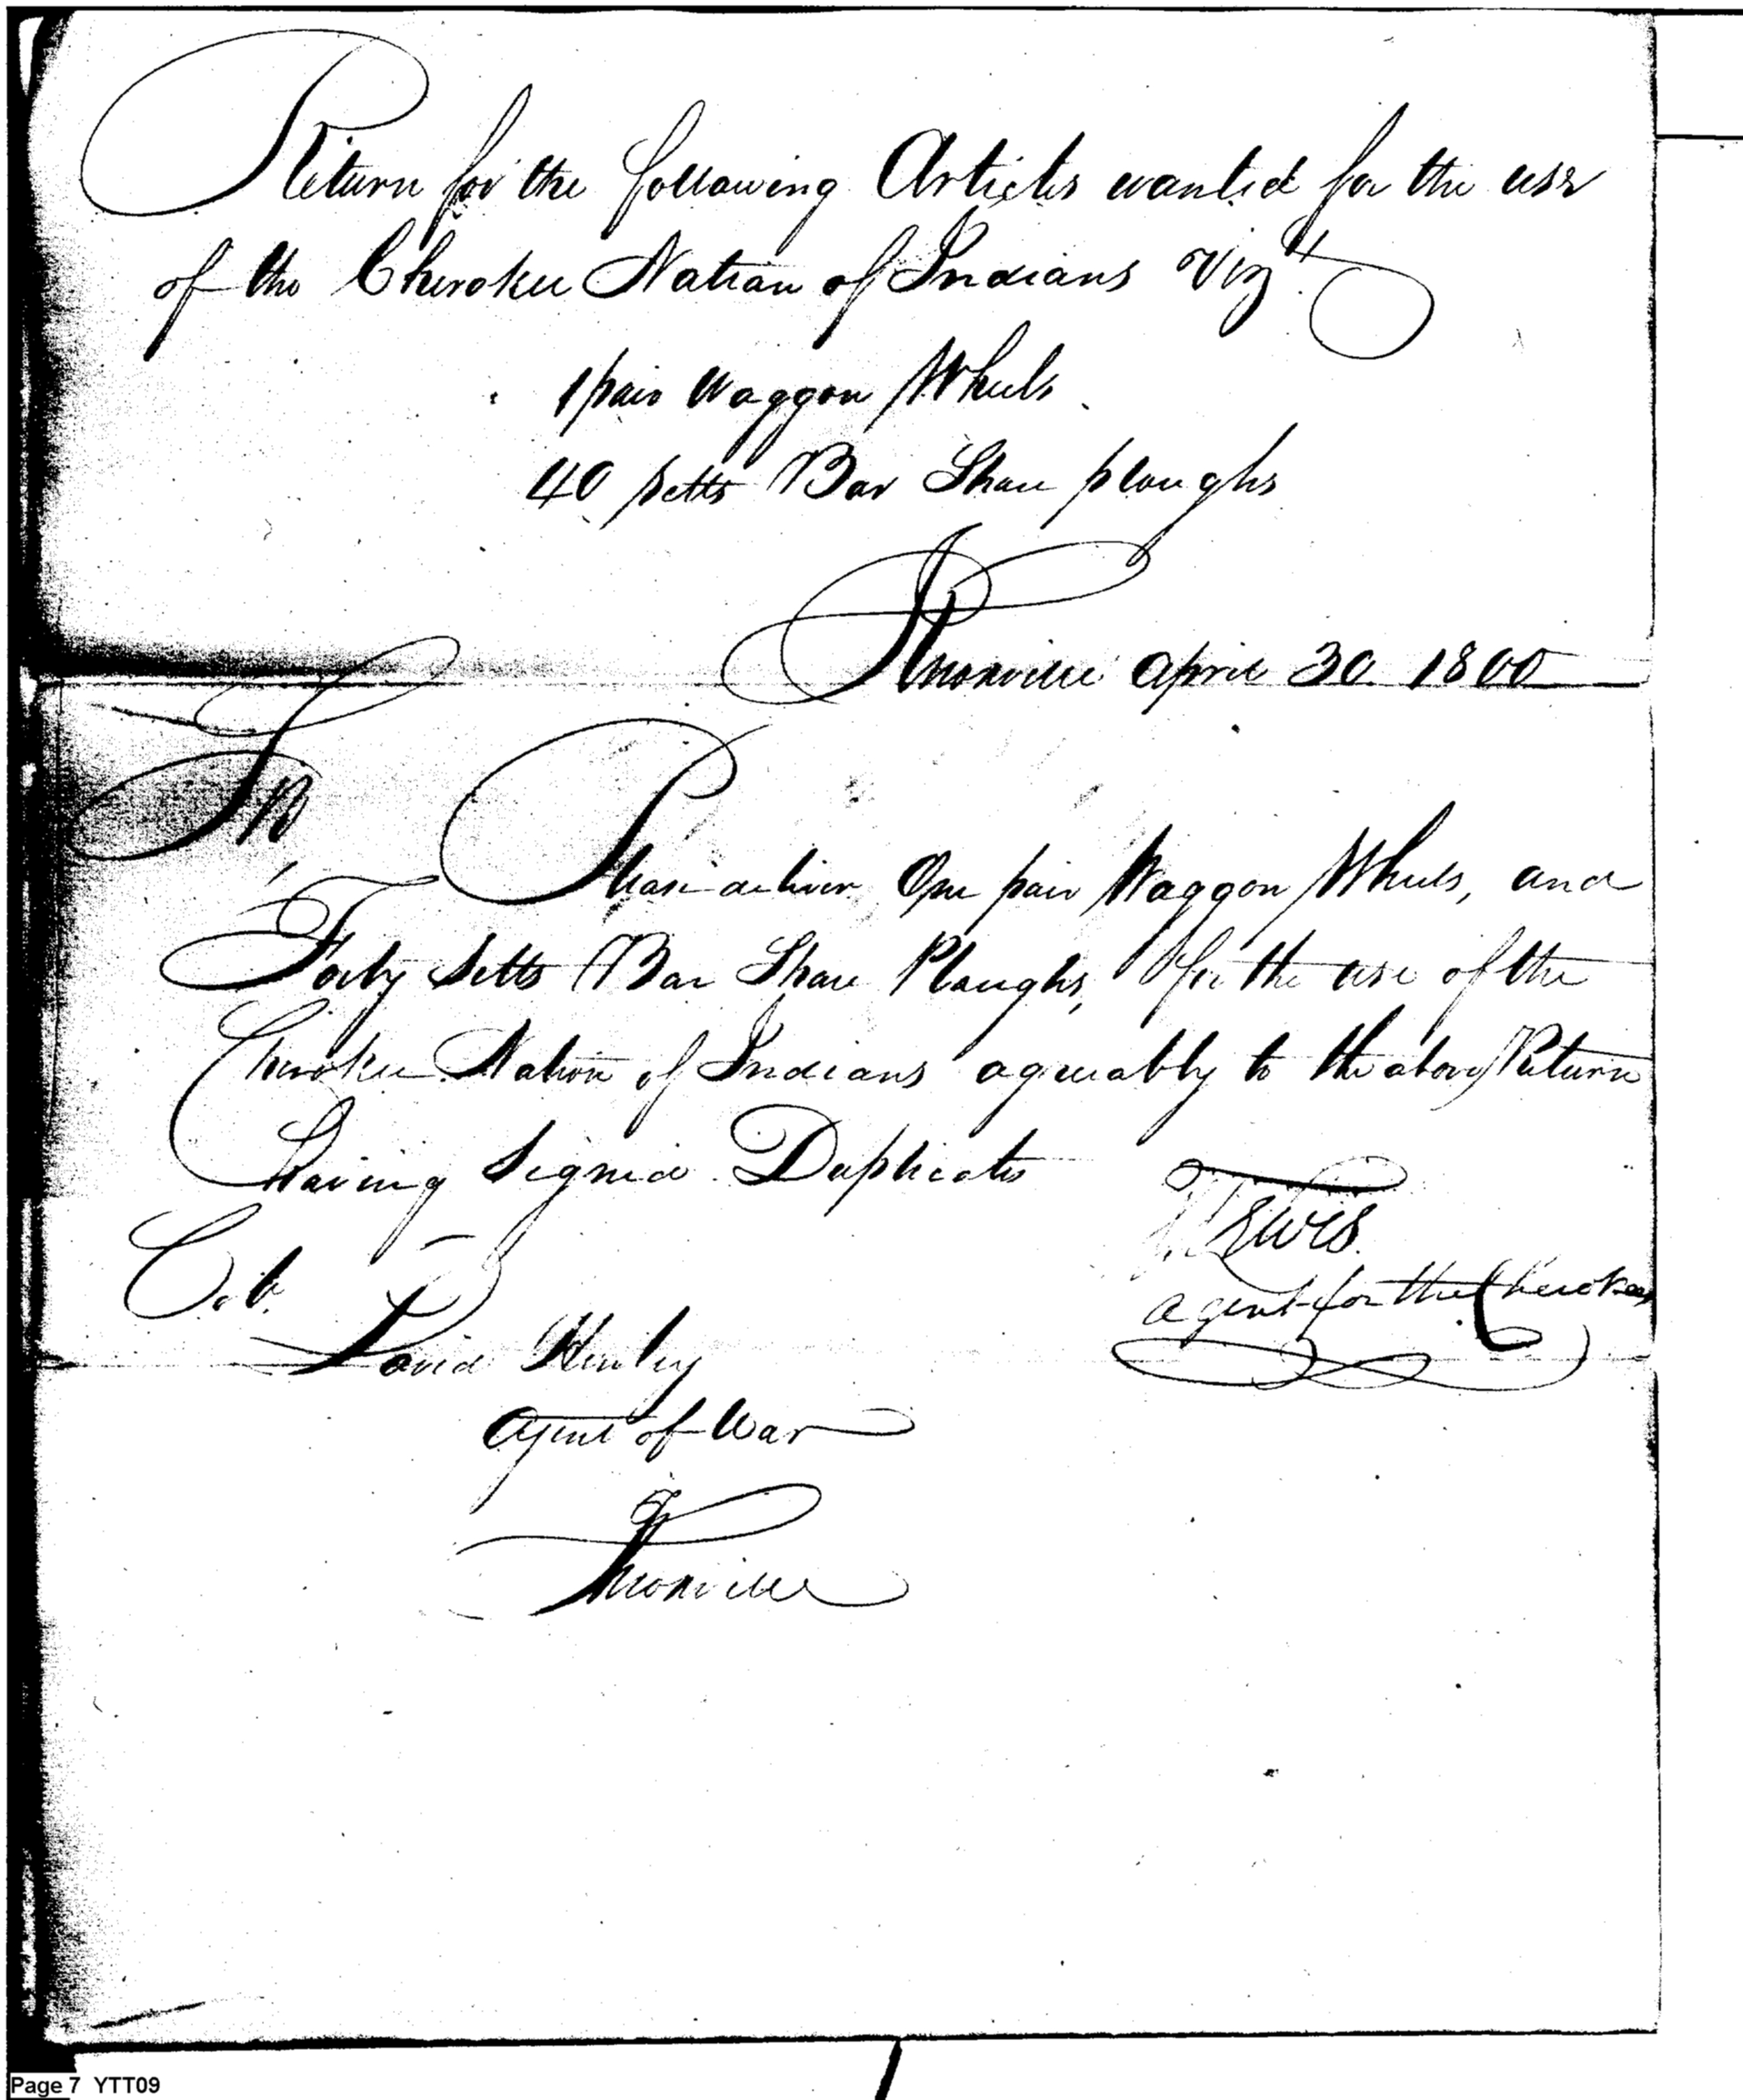 Return for the following Articles wanted for the use
of the Cherokee Nation of Indians Vizt
1 pair Waggon Wheels
40 Setts Bar Share ploughs
Knoxville April 30 1800
Sir,
Please deliver One pair Waggon Wheels, and
Forty Setts Bar Share Ploughs, for the use of the
Cherokee Nation of Indians agreeably to the above Return
Having Signed Duplicates
Lewis
agent for the Cherokees
Colo.
David Henley
Agent of War
Knoxville
Page 7 YTT09